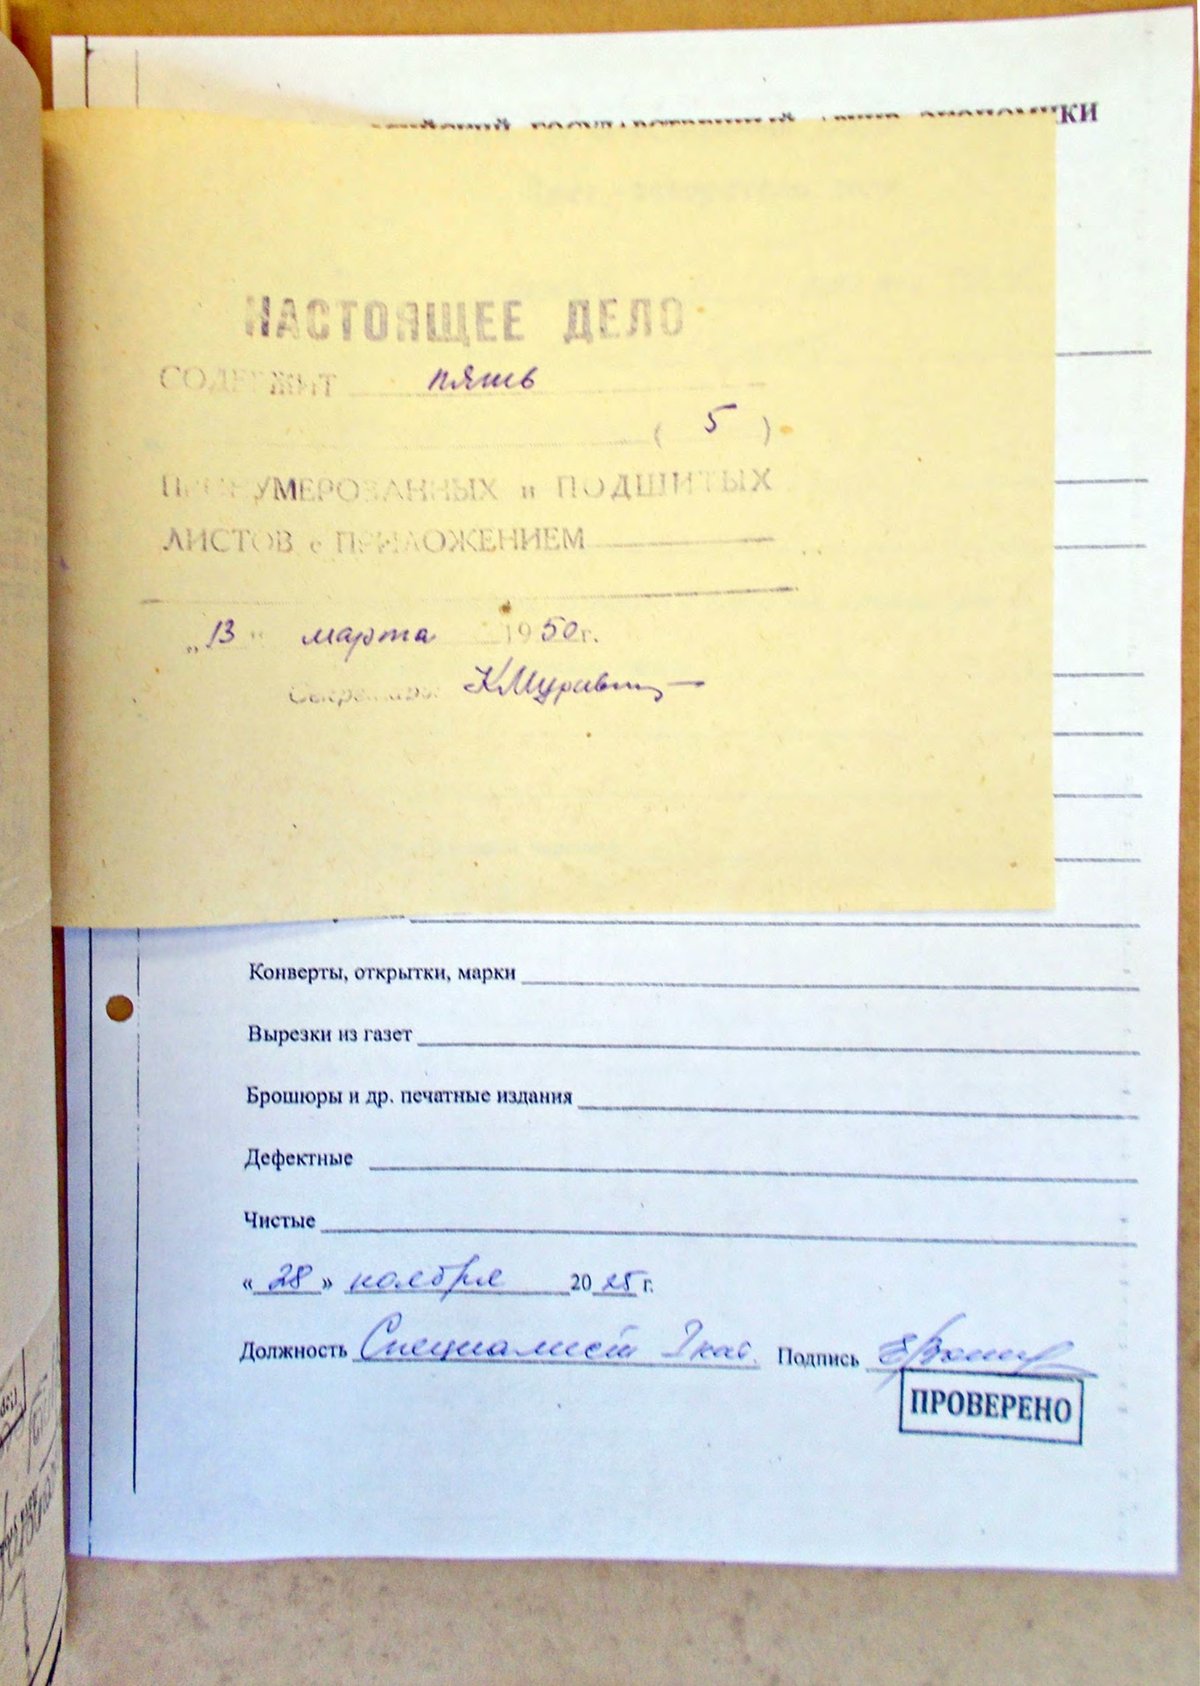 ГОСУДАРСТВЕННЫЙ АРХИВ ЭКОНОМИКИ
НАСТОЯЩЕЕ ДЕЛО
СОДЕРЖИТ пять
( 5 )
ПРОНУМЕРОВАННЫХ и ПОДШИТЫХ
ЛИСТОВ с ПРИЛОЖЕНИЕМ
„13“ марта 1950 г.
Секретарь
Конверты, открытки, марки
Вырезки из газет
Брошюры и др. печатные издания
Дефектные
Чистые
«28» ноября 2025 г.
Должность Специалист Iкат. Подпись
ПРОВЕРЕНО